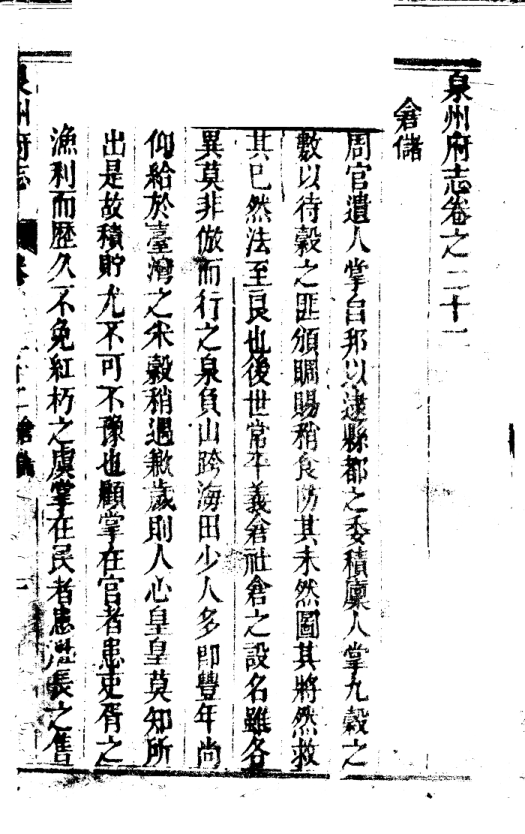 泉州府志卷之二十二
倉儲
周官遺人掌自邦以逮縣都之委積廩人掌九穀之
數以待穀之匪頒賙賜稍食防其未然圖其將然救
其已然法至良也後世常平義倉社倉之設名雖各
異莫非倣而行之泉負山跨海田少人多即豐年尚
仰給於臺灣之米穀稍遇歉歲則人心皇皇莫知所
出是故積貯尤不可不豫也顧掌在官者患吏胥之
漁利而歷久不免紅朽之虞掌在民者患長之售
泉州府志 卷 二 倉儲 一